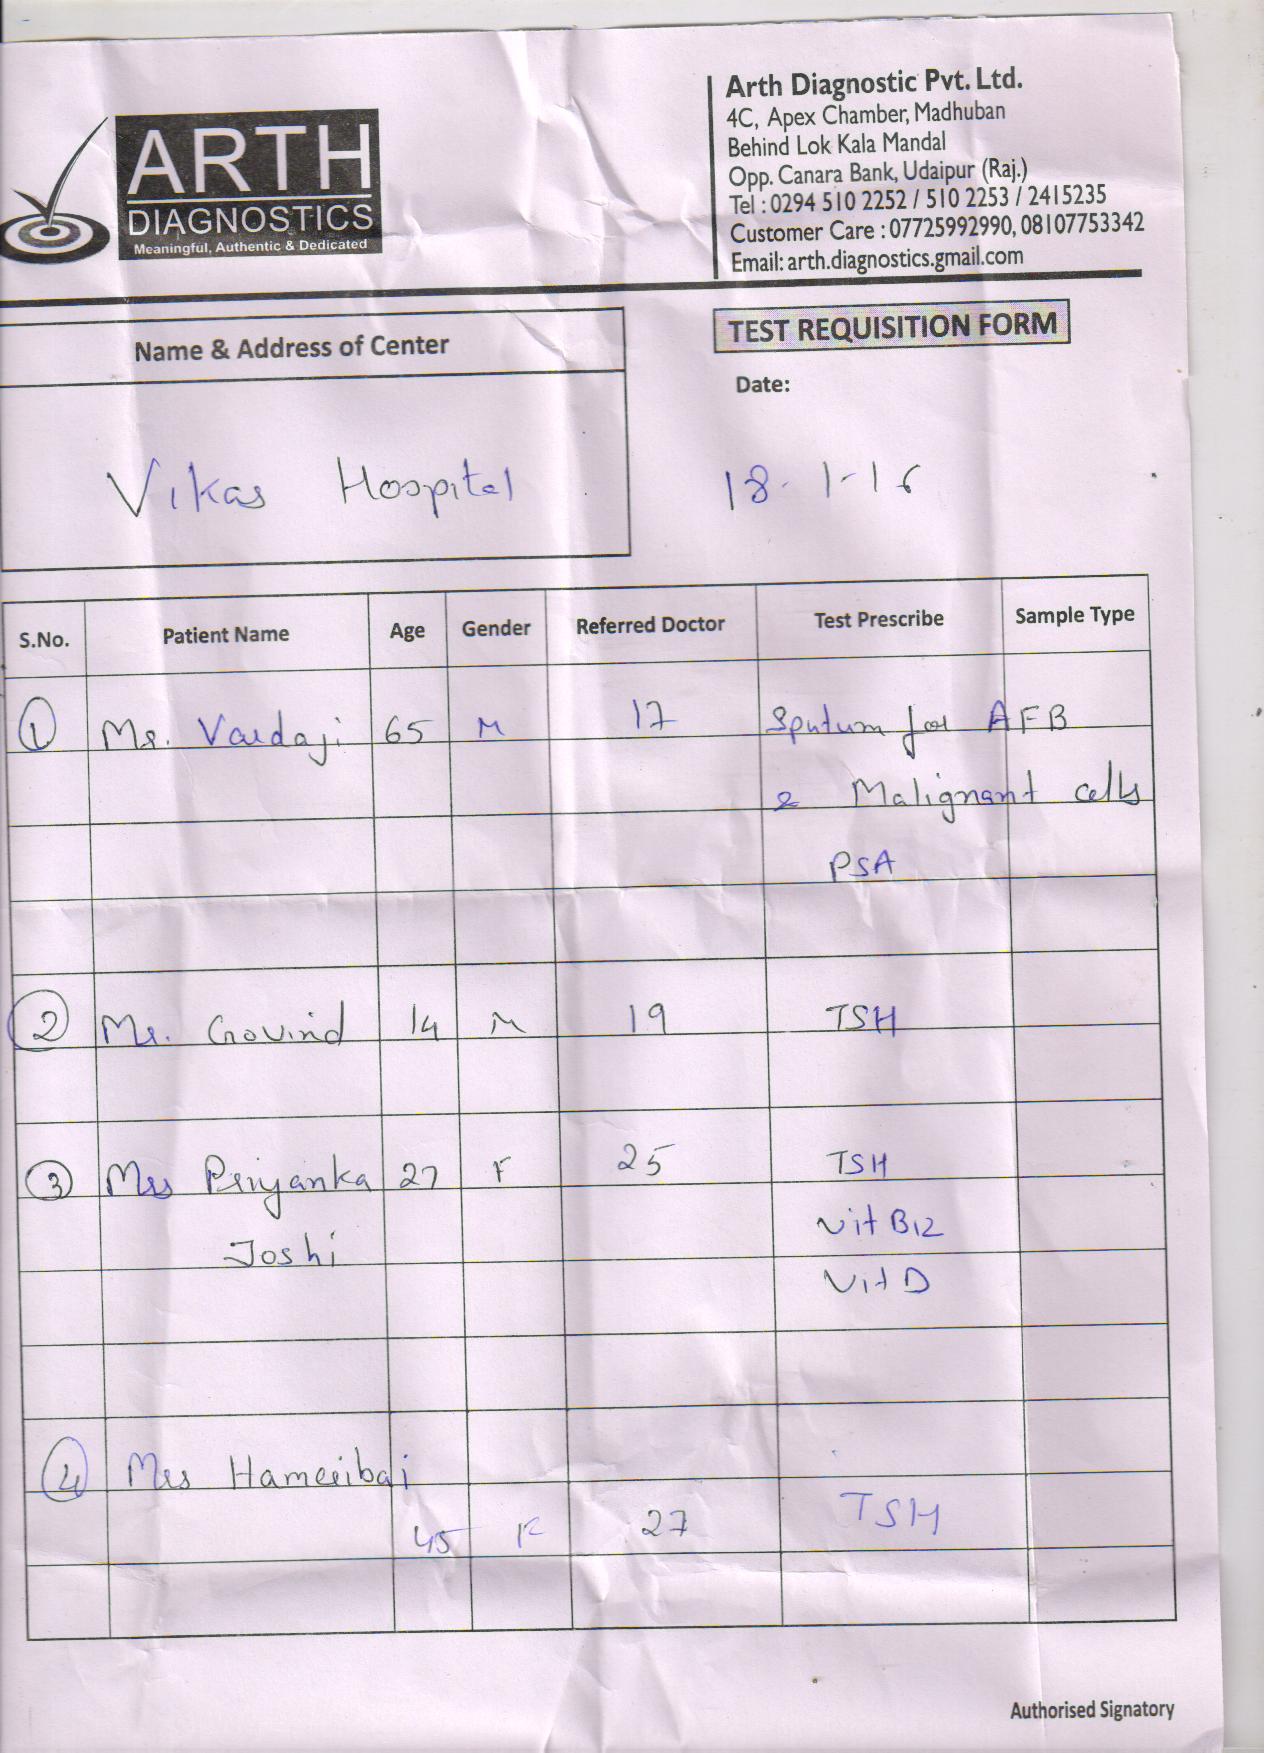 ARTH
DIAGNOSTICS
Meaningful, Authentic & Dedicated
Arth Diagnostic Pvt. Ltd.
4C, Apex Chamber, Madhuban
Behind Lok Kala Mandal
Opp. Canara Bank, Udaipur (Raj.)
Tel : 0294 510 2252 / 510 2253 / 2415235
Customer Care : 07725992990, 08107753342
Email: arth.diagnostics.gmail.com
Name & Address of Center
TEST REQUISITION FORM
Date:
Vikas Hospital
18-1-16
S.No. Patient Name Age Gender Referred Doctor Test Prescribe Sample Type
1 Mr. Vardaji 65 M 17 Sputum for AFB
& Malignant cells
PSA
2 Mr. Govind 14 M 19 TSH
3 Mrs Priyanka 27 F 25 TSH
Joshi Vit B12
Vit D
4 Mrs Hameribai
45 F 27 TSH
Authorised Signatory